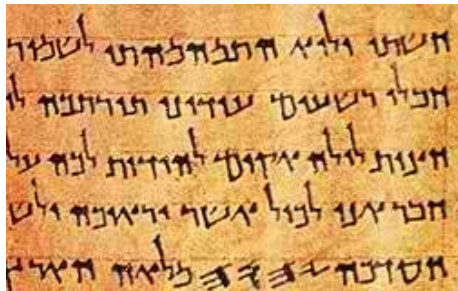 חשתי ולוא התמהמהתי לשמור
חבלי רשעים עודוני תורתכה לו
חצות לילה אקום להודות לכה על
חבר אני לכול אשר יראוכה ולש
חסדכה 𐤉𐤄𐤅𐤄 מלאה הארץ